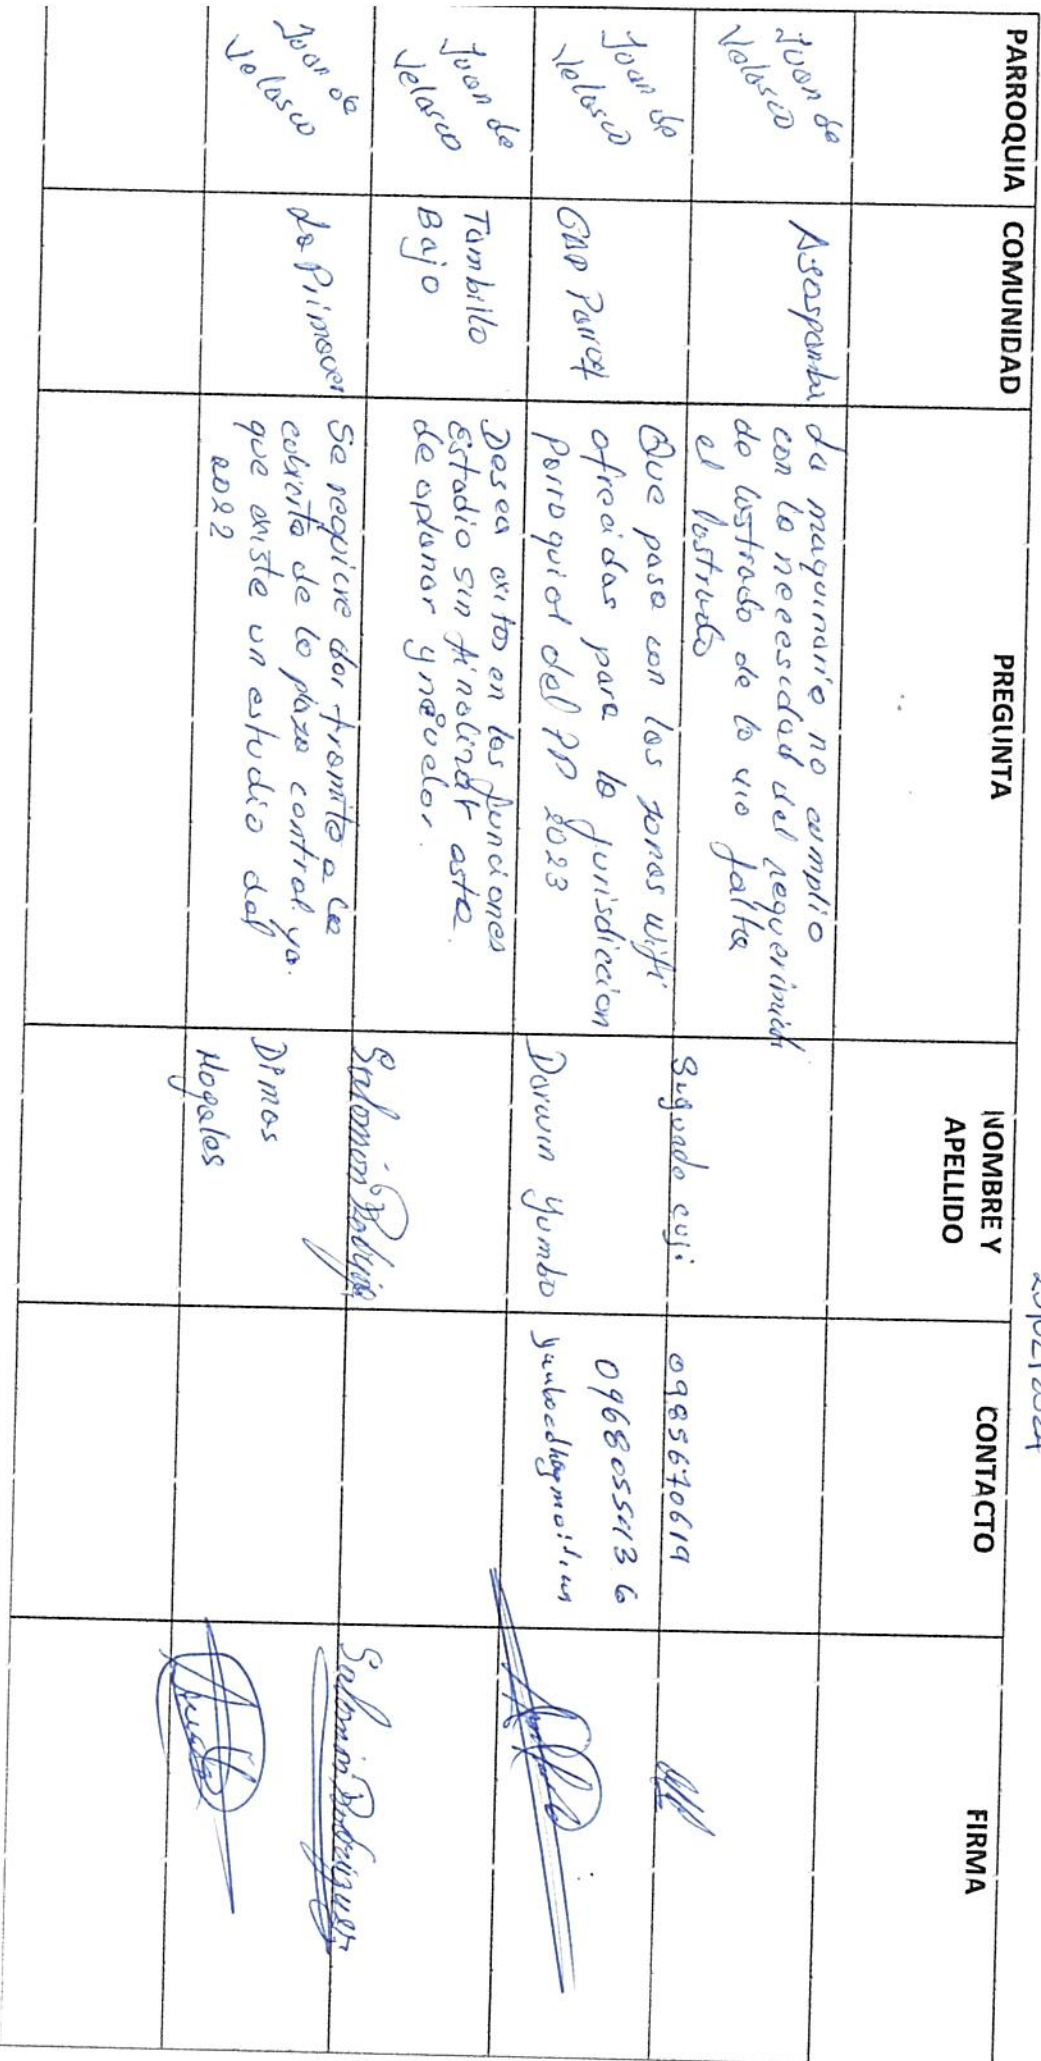 PARROQUIA COMUNIDAD PREGUNTA NOMBRE Y APELLIDO CONTACTO FIRMA
Juan de
Velasco
Asaspamba
La maquinaria no cumplio
con la necesidad del requerimiento
de lastrado de la via falta
el lastrado
Segundo cuji
0985670619
Juan de
Velasco
GAD Parroq
Que paso con las zonas wifi
ofrecidas para la jurisdiccion
Parroquial del PP 2023
Darwin Yumbo
0968055436
Juan de
Velasco
Tambillo
Bajo
Desea exitos en las funciones
Estadio sin finalizar asta
de aplanar y nivelar.
Salomón Rodrígue
Salomón Rodríguez
Juan de
Velasco
La Primaver
Se requiere dar tramite a la
cubierta de la plaza central ya.
que existe un estudio del
2022
Dimas
Nogales